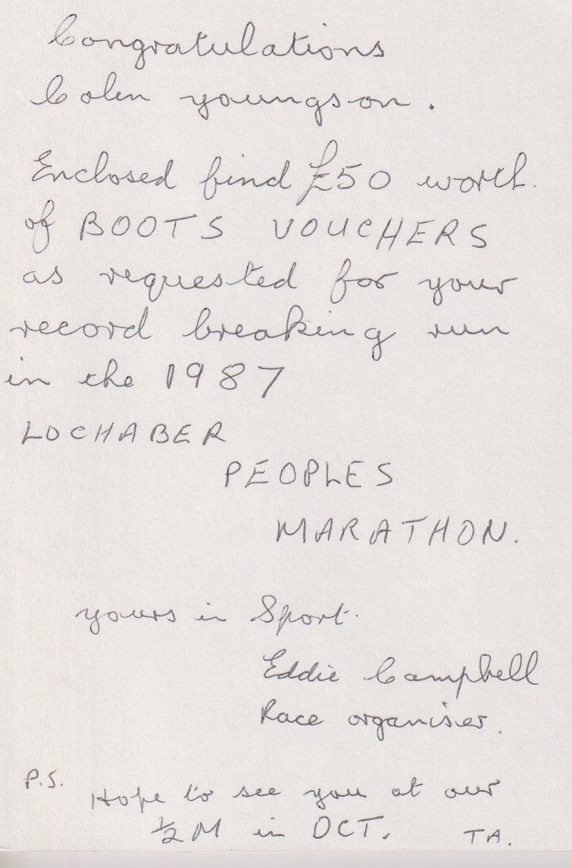 Congratulations
Colin youngson.
Enclosed find £50 worth.
of BOOTS VOUCHERS
as requested for your
record breaking run
in the 1987
LOCHABER
PEOPLES
MARATHON.
yours in Sport.
Eddie Campbell
Race organiser.
P.S. Hope to see you at our
½ M in OCT. TA.